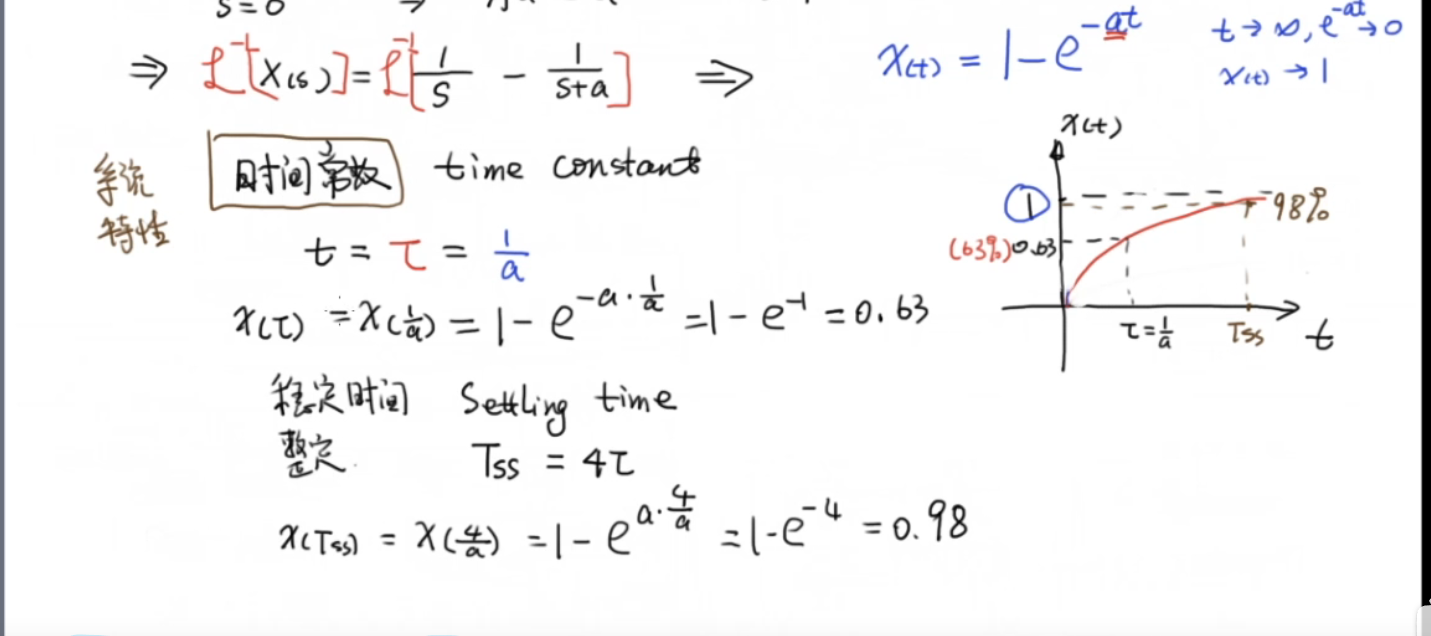 s=0 ⇒
⇒ ℒ⁻¹[X(s)] = ℒ⁻¹[1/s − 1/(s+a)] ⇒ x(t) = 1 − e^(−at)
t → ∞, e^(−at) → 0
x(t) → 1
系统
特性
时间常数 time constant
t = τ = 1/a
x(τ) = x(1/a) = 1 − e^(−a·1/a) = 1 − e^(−1) = 0.63
稳定时间 Settling time
整定 Tss = 4τ
x(Tss) = x(4/a) = 1 − e^(a·4/a) = 1 - e^(−4) = 0.98
x(t)
1 98%
(63%) 0.63
τ = 1/a Tss t